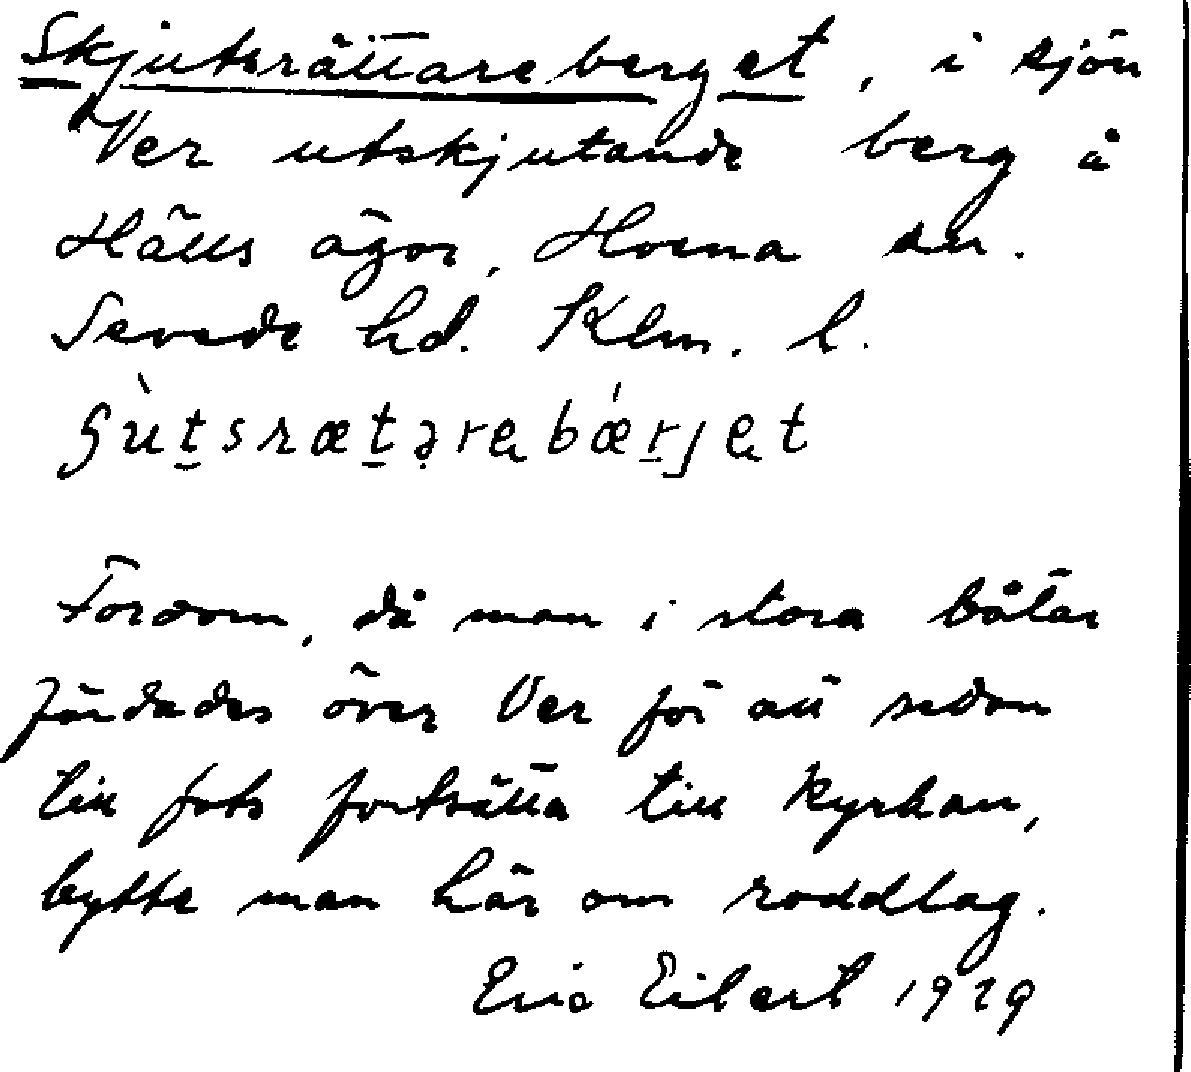 Skjutsrättareberget, i sjön
Ver utskjutande berg å
Hälls ägor, Horna sn.
Sevede hd. Klm. l.
ʃùtsrætərebǽrjet
Fordom, då man i stora båtar
färdades över Ver för att sedan
till fots fortsätta till kyrkan,
bytte man här om roddlag.
Eric Eilert 1929